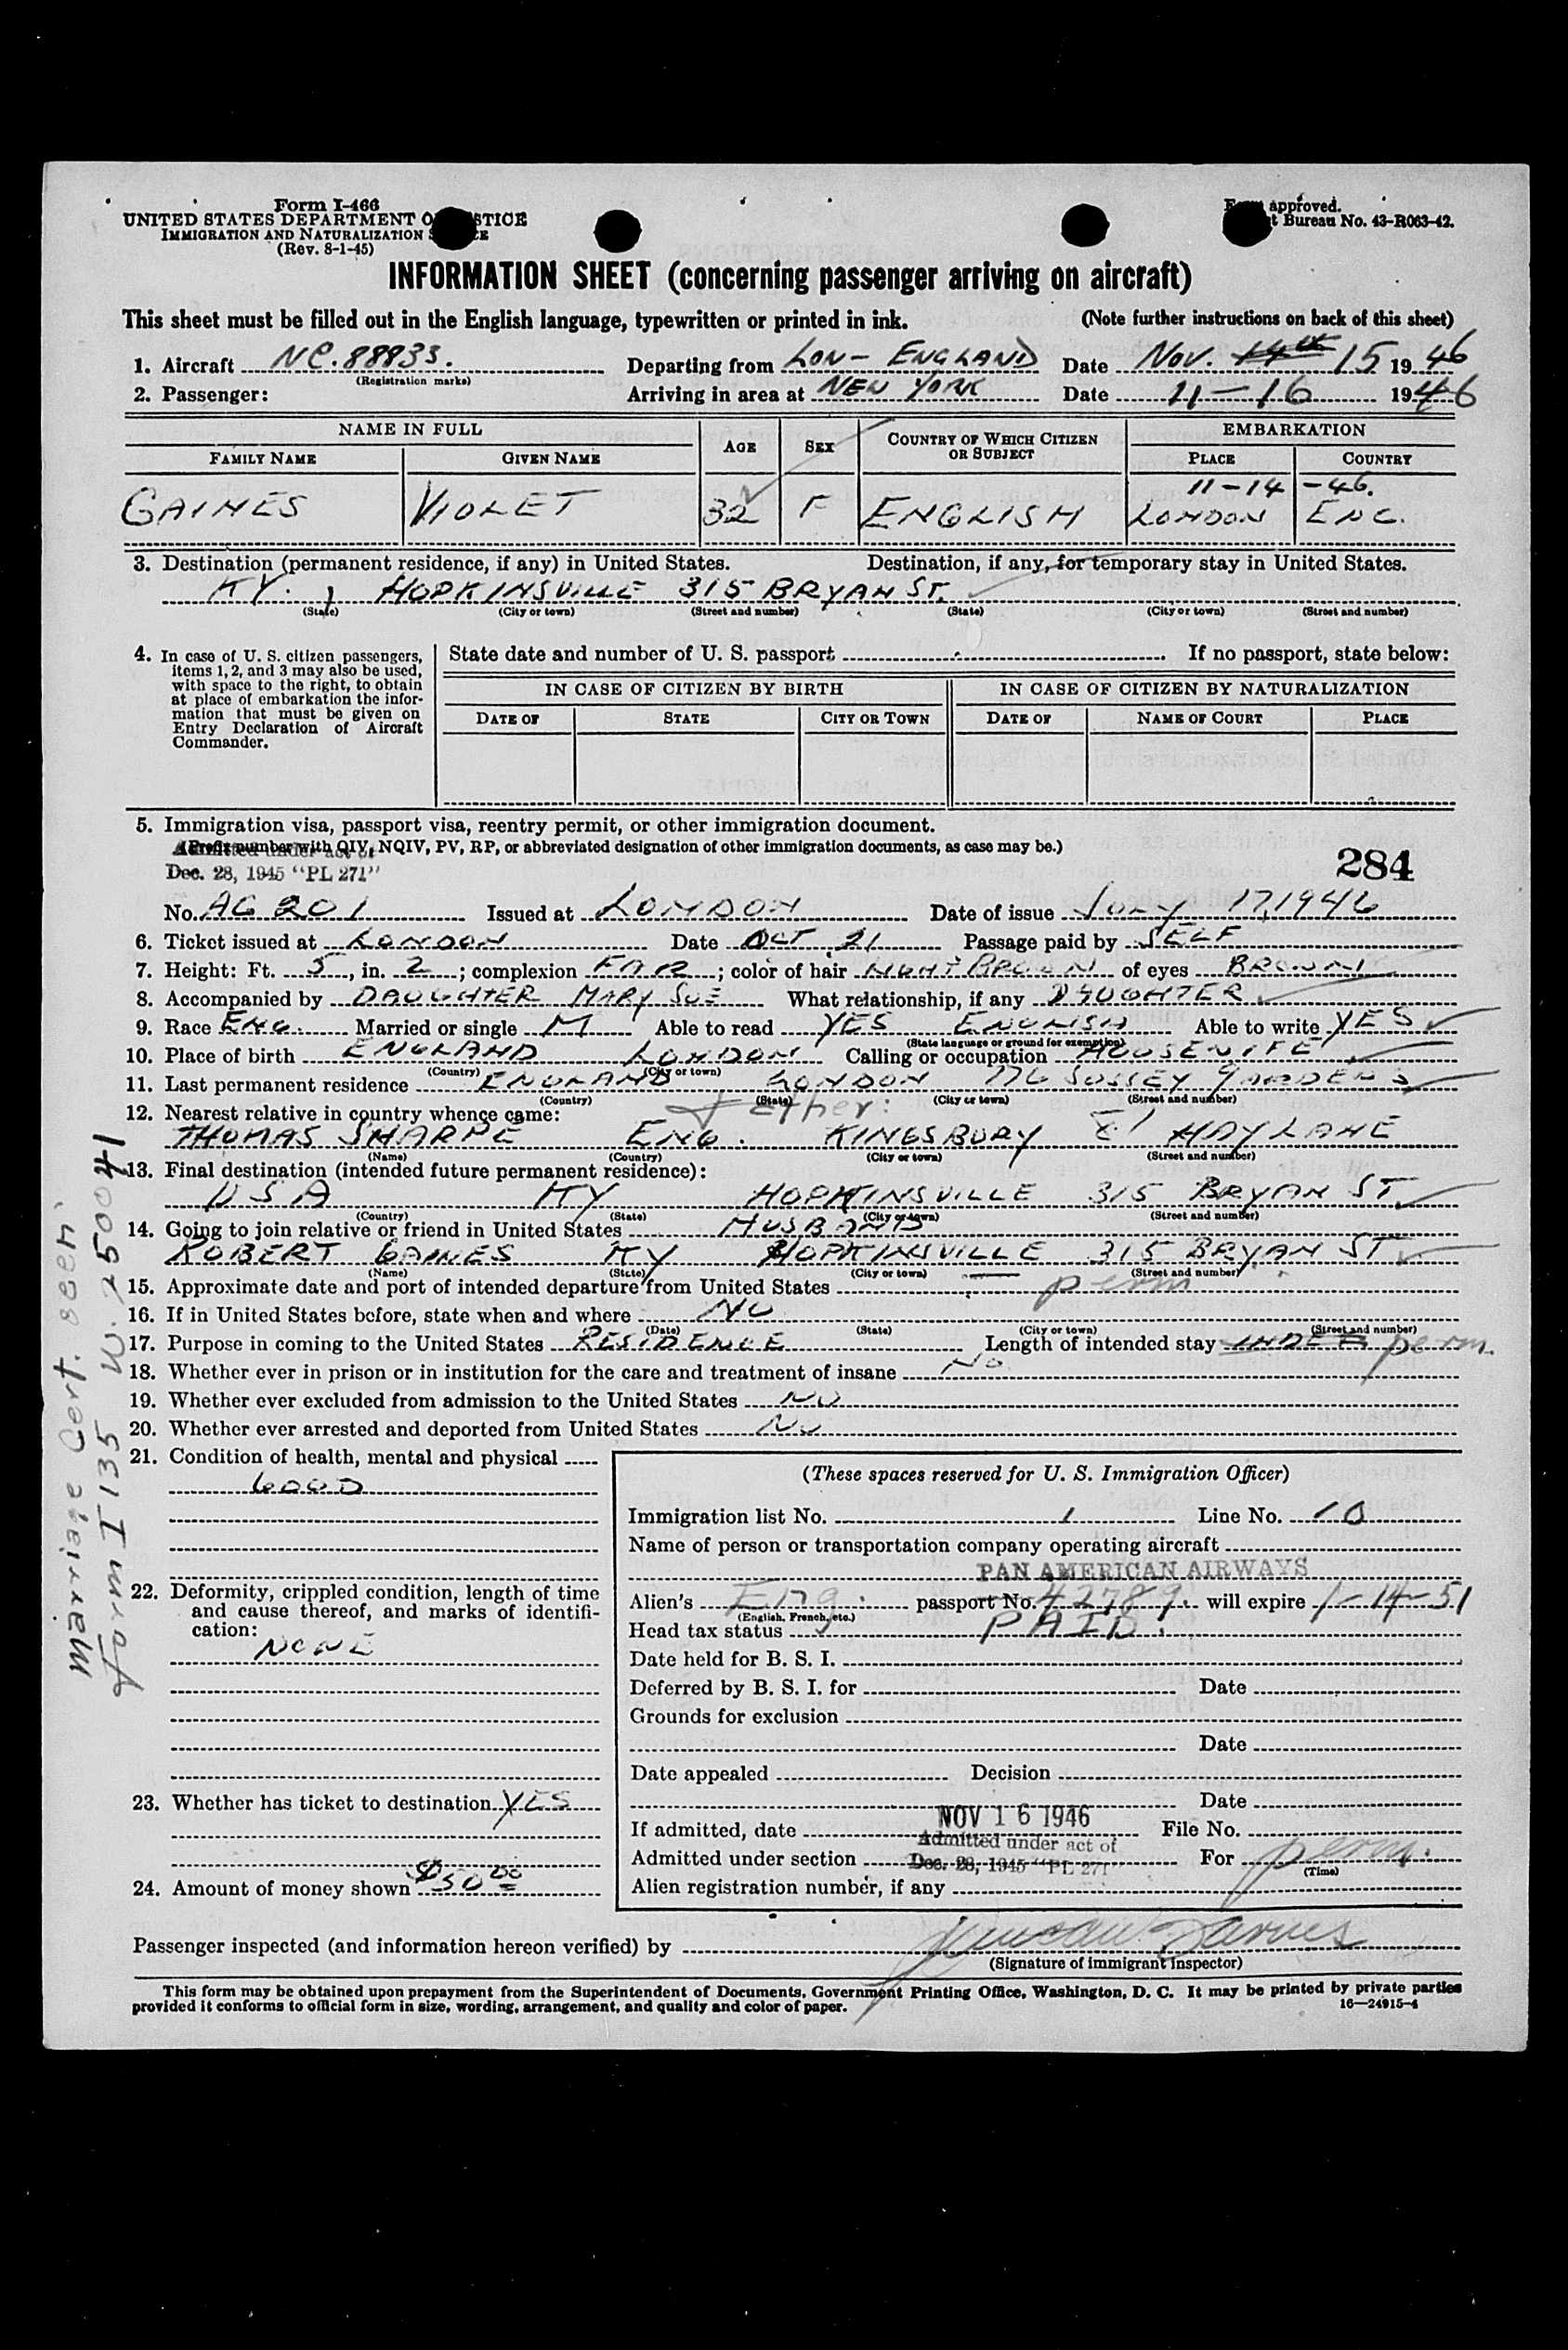 Form I-466
UNITED STATES DEPARTMENT O STICE
IMMIGRATION AND NATURALIZATION
(Rev. 8-1-45)
approved.
t Bureau No. 43-R063-42.
INFORMATION SHEET (concerning passenger arriving on aircraft)
This sheet must be filled out in the English language, typewritten or printed in ink. (Note further instructions on back of this sheet)
1. Aircraft NC.88833. Departing from LON- ENGLAND Date NOV. 14th 15 1946
(Registration marks)
2. Passenger: Arriving in area at NEW YORK Date 11-16 1946
NAME IN FULL AGE SEX COUNTRY OF WHICH CITIZEN OR SUBJECT EMBARKATION
FAMILY NAME GIVEN NAME PLACE COUNTRY
11-14-46.
GAINES VIOLET 32 F ENGLISH LONDON ENG.
3. Destination (permanent residence, if any) in United States. Destination, if any, for temporary stay in United States.
KY. HOPKINSVILLE 315 BRYAN ST.
(State) (City or town) (Street and number) (State) (City or town) (Street and number)
4. In case of U. S. citizen passengers,
items 1, 2, and 3 may also be used,
with space to the right, to obtain
at place of embarkation the infor-
mation that must be given on
Entry Declaration of Aircraft
Commander.
State date and number of U. S. passport If no passport, state below:
IN CASE OF CITIZEN BY BIRTH IN CASE OF CITIZEN BY NATURALIZATION
DATE OF STATE CITY OR TOWN DATE OF NAME OF COURT PLACE
5. Immigration visa, passport visa, reentry permit, or other immigration document.
(Prefix number with QIV, NQIV, PV, RP, or abbreviated designation of other immigration documents, as case may be.)
Admitted under act of
Dec. 28, 1945 "PL 271"
284
No. AG 201 Issued at LONDON Date of issue JULY 17, 1946
6. Ticket issued at LONDON Date OCT 21 Passage paid by SELF
7. Height: Ft. 5, in. 2; complexion FAIR; color of hair LIGHT BROWN of eyes BROWN
8. Accompanied by DAUGHTER MARY SUE What relationship, if any DAUGHTER
9. Race ENG. Married or single M Able to read YES ENGLISH Able to write YES
(State language or ground for exemption)
10. Place of birth ENGLAND LONDON Calling or occupation HOUSEWIFE
(Country) (City or town)
11. Last permanent residence ENGLAND LONDON 176 SUSSEX GARDENS
(Country) (State) (City or town) (Street and number)
12. Nearest relative in country whence came: Father:
THOMAS SHARPE ENG. KINGSBURY 81 HAY LANE
(Name) (Country) (City or town) (Street and number)
13. Final destination (intended future permanent residence):
USA KY HOPKINSVILLE 315 BRYAN ST
(Country) (State) (City or town) (Street and number)
14. Going to join relative or friend in United States HUSBAND
ROBERT GAINES KY HOPKINSVILLE 315 BRYAN ST
(Name) (State) (City or town) (Street and number)
15. Approximate date and port of intended departure from United States perm
16. If in United States before, state when and where NO
(Date) (State) (City or town) (Street and number)
17. Purpose in coming to the United States RESIDENCE Length of intended stay INDEF perm.
18. Whether ever in prison or in institution for the care and treatment of insane No
19. Whether ever excluded from admission to the United States NO
20. Whether ever arrested and deported from United States NO
21. Condition of health, mental and physical
GOOD
22. Deformity, crippled condition, length of time
and cause thereof, and marks of identifi-
cation:
NONE
23. Whether has ticket to destination YES
24. Amount of money shown $50 00
(These spaces reserved for U. S. Immigration Officer)
Immigration list No. 1 Line No. 10
Name of person or transportation company operating aircraft
PAN AMERICAN AIRWAYS
Alien's Eng. passport No. 42789. will expire 1-14-51
(English, French, etc.)
Head tax status PAID.
Date held for B. S. I.
Deferred by B. S. I. for Date
Grounds for exclusion
Date
Date appealed Decision
Date
If admitted, date NOV 16 1946 File No.
Admitted under section Admitted under act of Dec. 28, 1945 "PL 271" For perm.
(Time)
Alien registration number, if any
Passenger inspected (and information hereon verified) by
(Signature of immigrant inspector)
This form may be obtained upon prepayment from the Superintendent of Documents, Government Printing Office, Washington, D. C. It may be printed by private parties
provided it conforms to official form in size, wording, arrangement, and quality and color of paper. 16—24915-4
Marriage Cert. seen
Form I 135 W. 250041